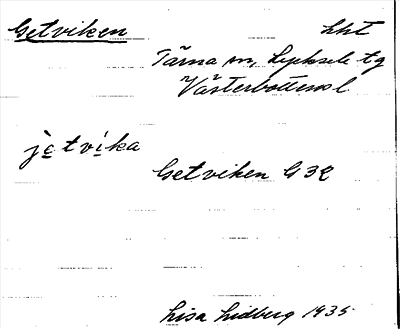 Getviken lht
Tärna sn, Lycksele tg
Västerbottens l
jetvika
Getviken G 32
Lisa Lidberg 1935